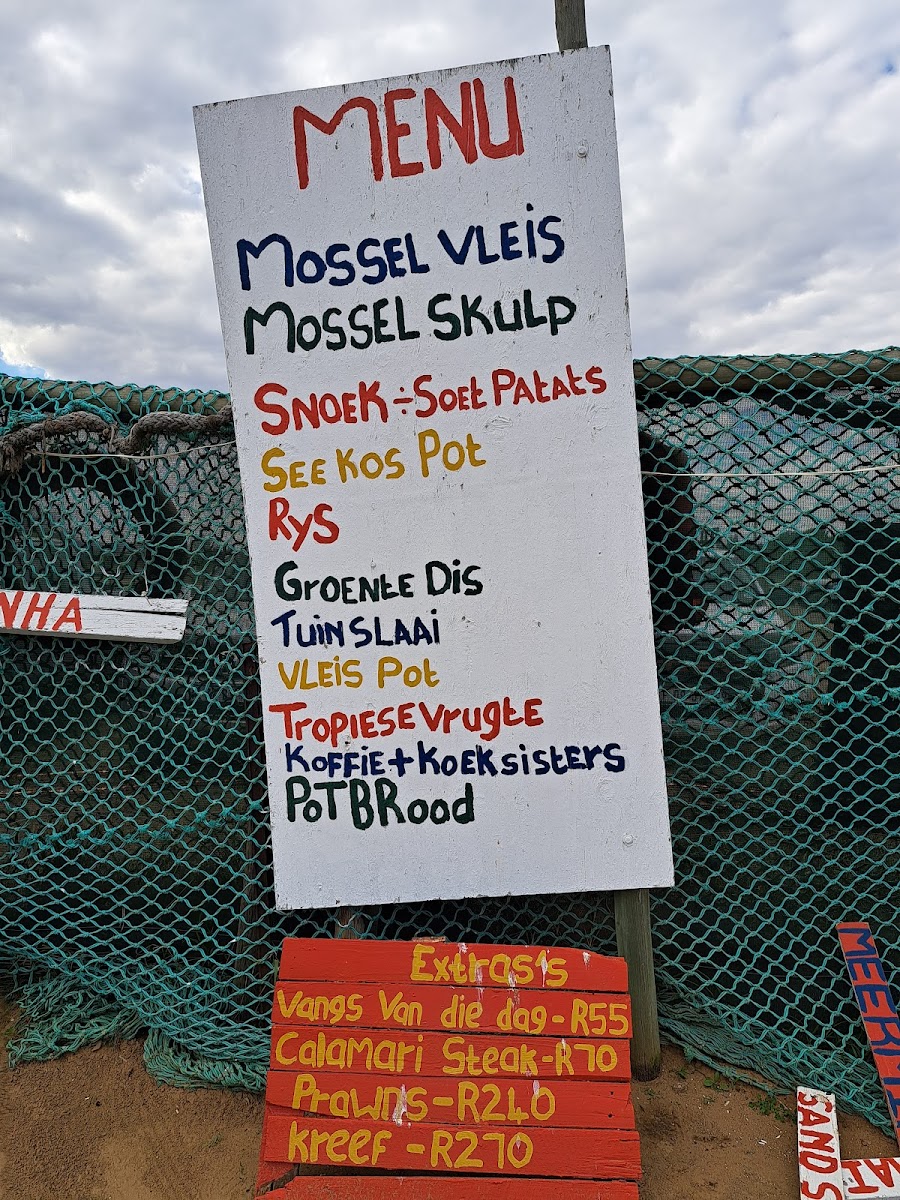 MENU
MOSSEL VLEIS
MOSSEL SKULP
SNOEK ÷ SOET PATATS
SEE KOS POT
RYS
GROENTE DIS
TUINSLAAI
VLEIS POT
TROPIESE VRUGTE
KOFFIE + KOEKSISTERS
POTBROOD
NHA
Extras's
Vangs Van die dag - R55
Calamari Steak - R70
Prawns - R240
Kreef - R270
SAND S